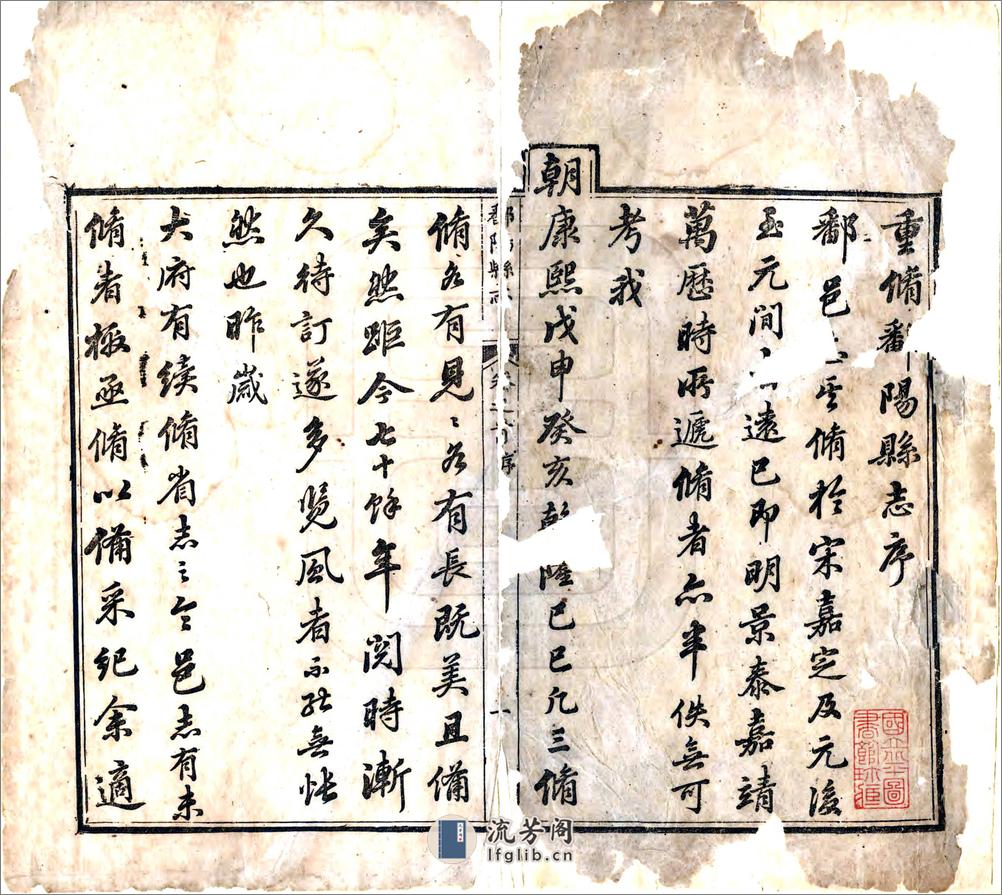 重脩鄱陽縣志序
鄱邑志脩於宋嘉定及元後
至元間遠已即明景泰嘉靖
萬歷時所遞脩者亦半佚無可
考我
朝康熙戊申癸亥乾隆己巳凡三脩
鄱陽縣志
序
一
脩各有見〻各有長既美且備
矣然距今七十餘年閱時漸
久待訂遂多覽風者不能無悵
然也昨歲
大府有續脩省志之令邑志有未
脩者極亟脩以備采紀余適
流芳阁
lfglib.cn